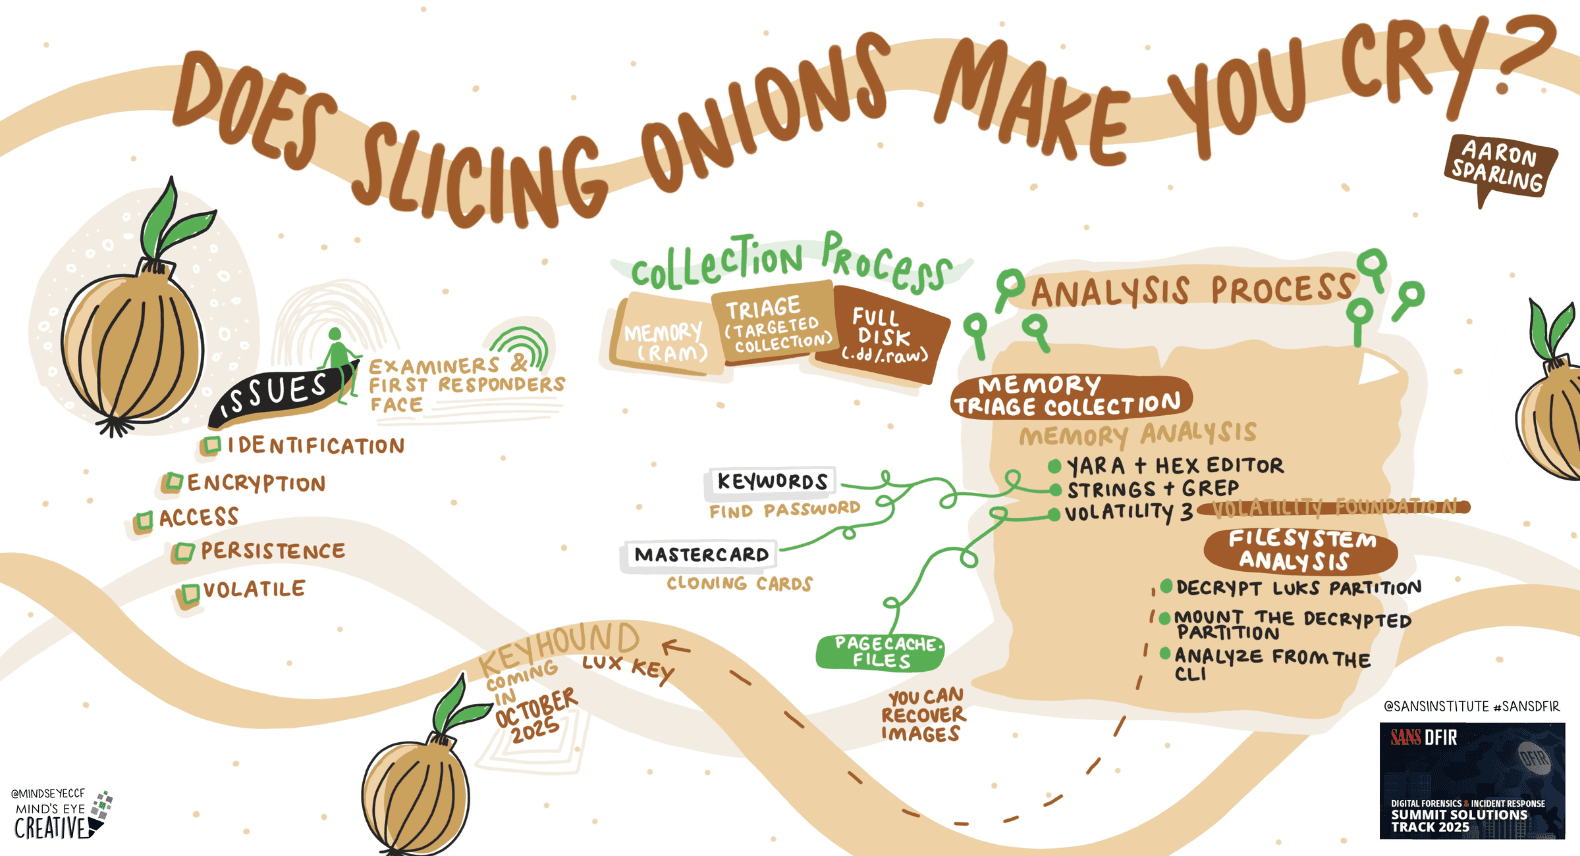 DOES SLICING ONIONS MAKE YOU CRY?
AARON
SPARLING
ISSUES
EXAMINERS &
FIRST RESPONDERS
FACE
IDENTIFICATION
ENCRYPTION
ACCESS
PERSISTENCE
VOLATILE
COLLECTION PROCESS
MEMORY
(RAM)
TRIAGE
(TARGETED
COLLECTION)
FULL
DISK
(.dd/.raw)
ANALYSIS PROCESS
MEMORY
TRIAGE COLLECTION
MEMORY ANALYSIS
YARA + HEX EDITOR
STRINGS + GREP
VOLATILITY 3
VOLATILITY FOUNDATION
KEYWORDS
FIND PASSWORD
MASTERCARD
CLONING CARDS
PAGECACHE.
FILES
YOU CAN
RECOVER
IMAGES
FILESYSTEM
ANALYSIS
DECRYPT LUKS PARTITION
MOUNT THE DECRYPTED
PARTITION
ANALYZE FROM THE
CLI
KEYHOUND
LUX KEY
COMING
IN
OCTOBER
2025
@MINDSEYECCF
MIND'S EYE
CREATIVE
@SANSINSTITUTE #SANSDFIR
SANS DFIR
DFIR
DIGITAL FORENSICS & INCIDENT RESPONSE
SUMMIT SOLUTIONS
TRACK 2025